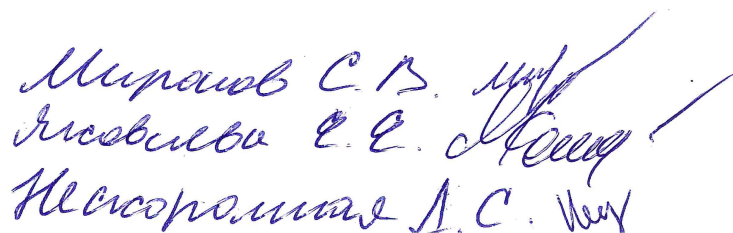 Мирасов С. В.
Яковлева Е. Е.
Нескоромная Л. С.